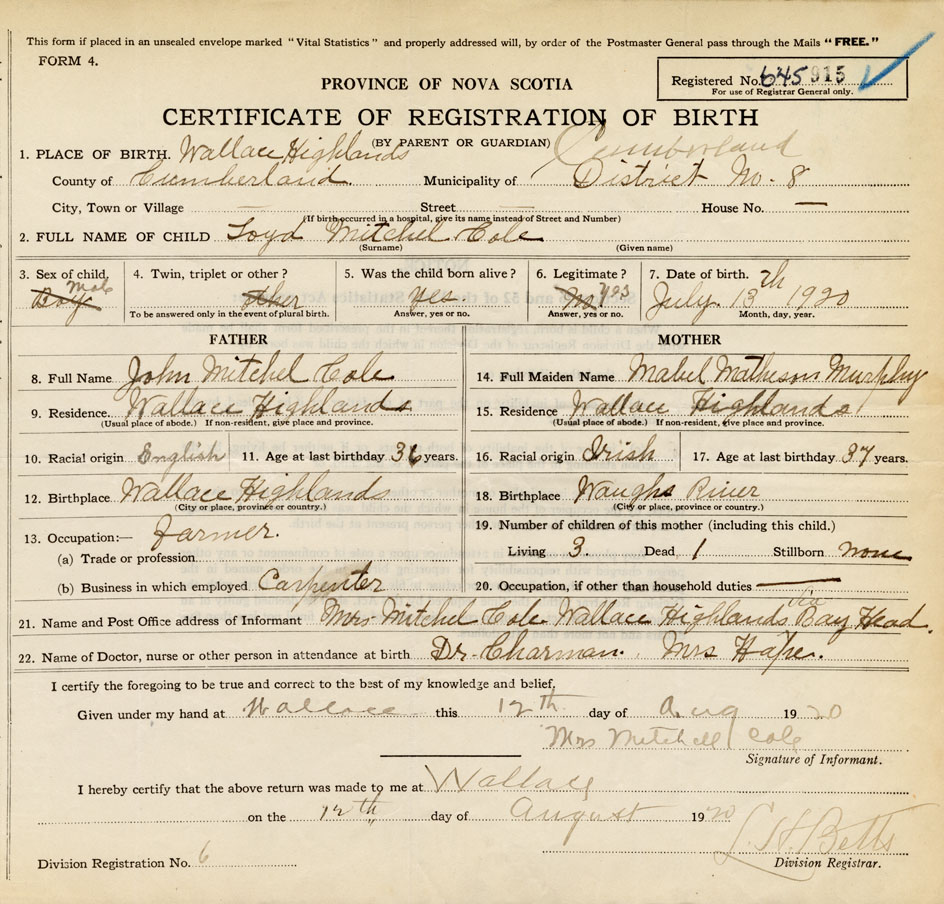 This form if placed in an unsealed envelope marked "Vital Statistics" and properly addressed will, by order of the Postmaster General pass through the Mails "FREE."
FORM 4.
Registered No. 645915
For use of Registrar General only.
PROVINCE OF NOVA SCOTIA
CERTIFICATE OF REGISTRATION OF BIRTH
(BY PARENT OR GUARDIAN)
Cumberland
1. PLACE OF BIRTH. Wallace Highlands
County of Cumberland Municipality of District No. 8
City, Town or Village — Street — House No. —
(If birth occurred in a hospital, give its name instead of Street and Number)
2. FULL NAME OF CHILD Loyd Mitchel Cole
(Surname) (Given name)
3. Sex of child. Boy Male
4. Twin, triplet or other? other
To be answered only in the event of plural birth.
5. Was the child born alive? Yes.
Answer, yes or no.
6. Legitimate? No yes
Answer, yes or no.
7. Date of birth. July 13th 1920
Month, day, year.
FATHER
8. Full Name John Mitchel Cole
9. Residence. Wallace Highlands
(Usual place of abode.) If non-resident, give place and province.
10. Racial origin English 11. Age at last birthday 36 years.
12. Birthplace Wallace Highlands
(City or place, province or country.)
13. Occupation:— Farmer.
(a) Trade or profession
(b) Business in which employed Carpenter
MOTHER
14. Full Maiden Name Mabel Matheson Murphy
15. Residence Wallace Highlands
(Usual place of abode.) If non-resident, give place and province.
16. Racial origin Irish 17. Age at last birthday 37 years.
18. Birthplace Waughs River
(City or place, province or country.)
19. Number of children of this mother (including this child.)
Living 3. Dead 1 Stillborn none
20. Occupation, if other than household duties —
21. Name and Post Office address of Informant Mrs Mitchel Cole Wallace Highlands via Bay Head.
22. Name of Doctor, nurse or other person in attendance at birth Dr. Charman. Mrs
I certify the foregoing to be true and correct to the best of my knowledge and belief,
Given under my hand at Wallace this 12th day of Aug 1920
Mrs Mitchell Cole
Signature of Informant.
I hereby certify that the above return was made to me at Wallace
on the 12th day of August 1920
L. H. Betts
Division Registration No. 6 Division Registrar.